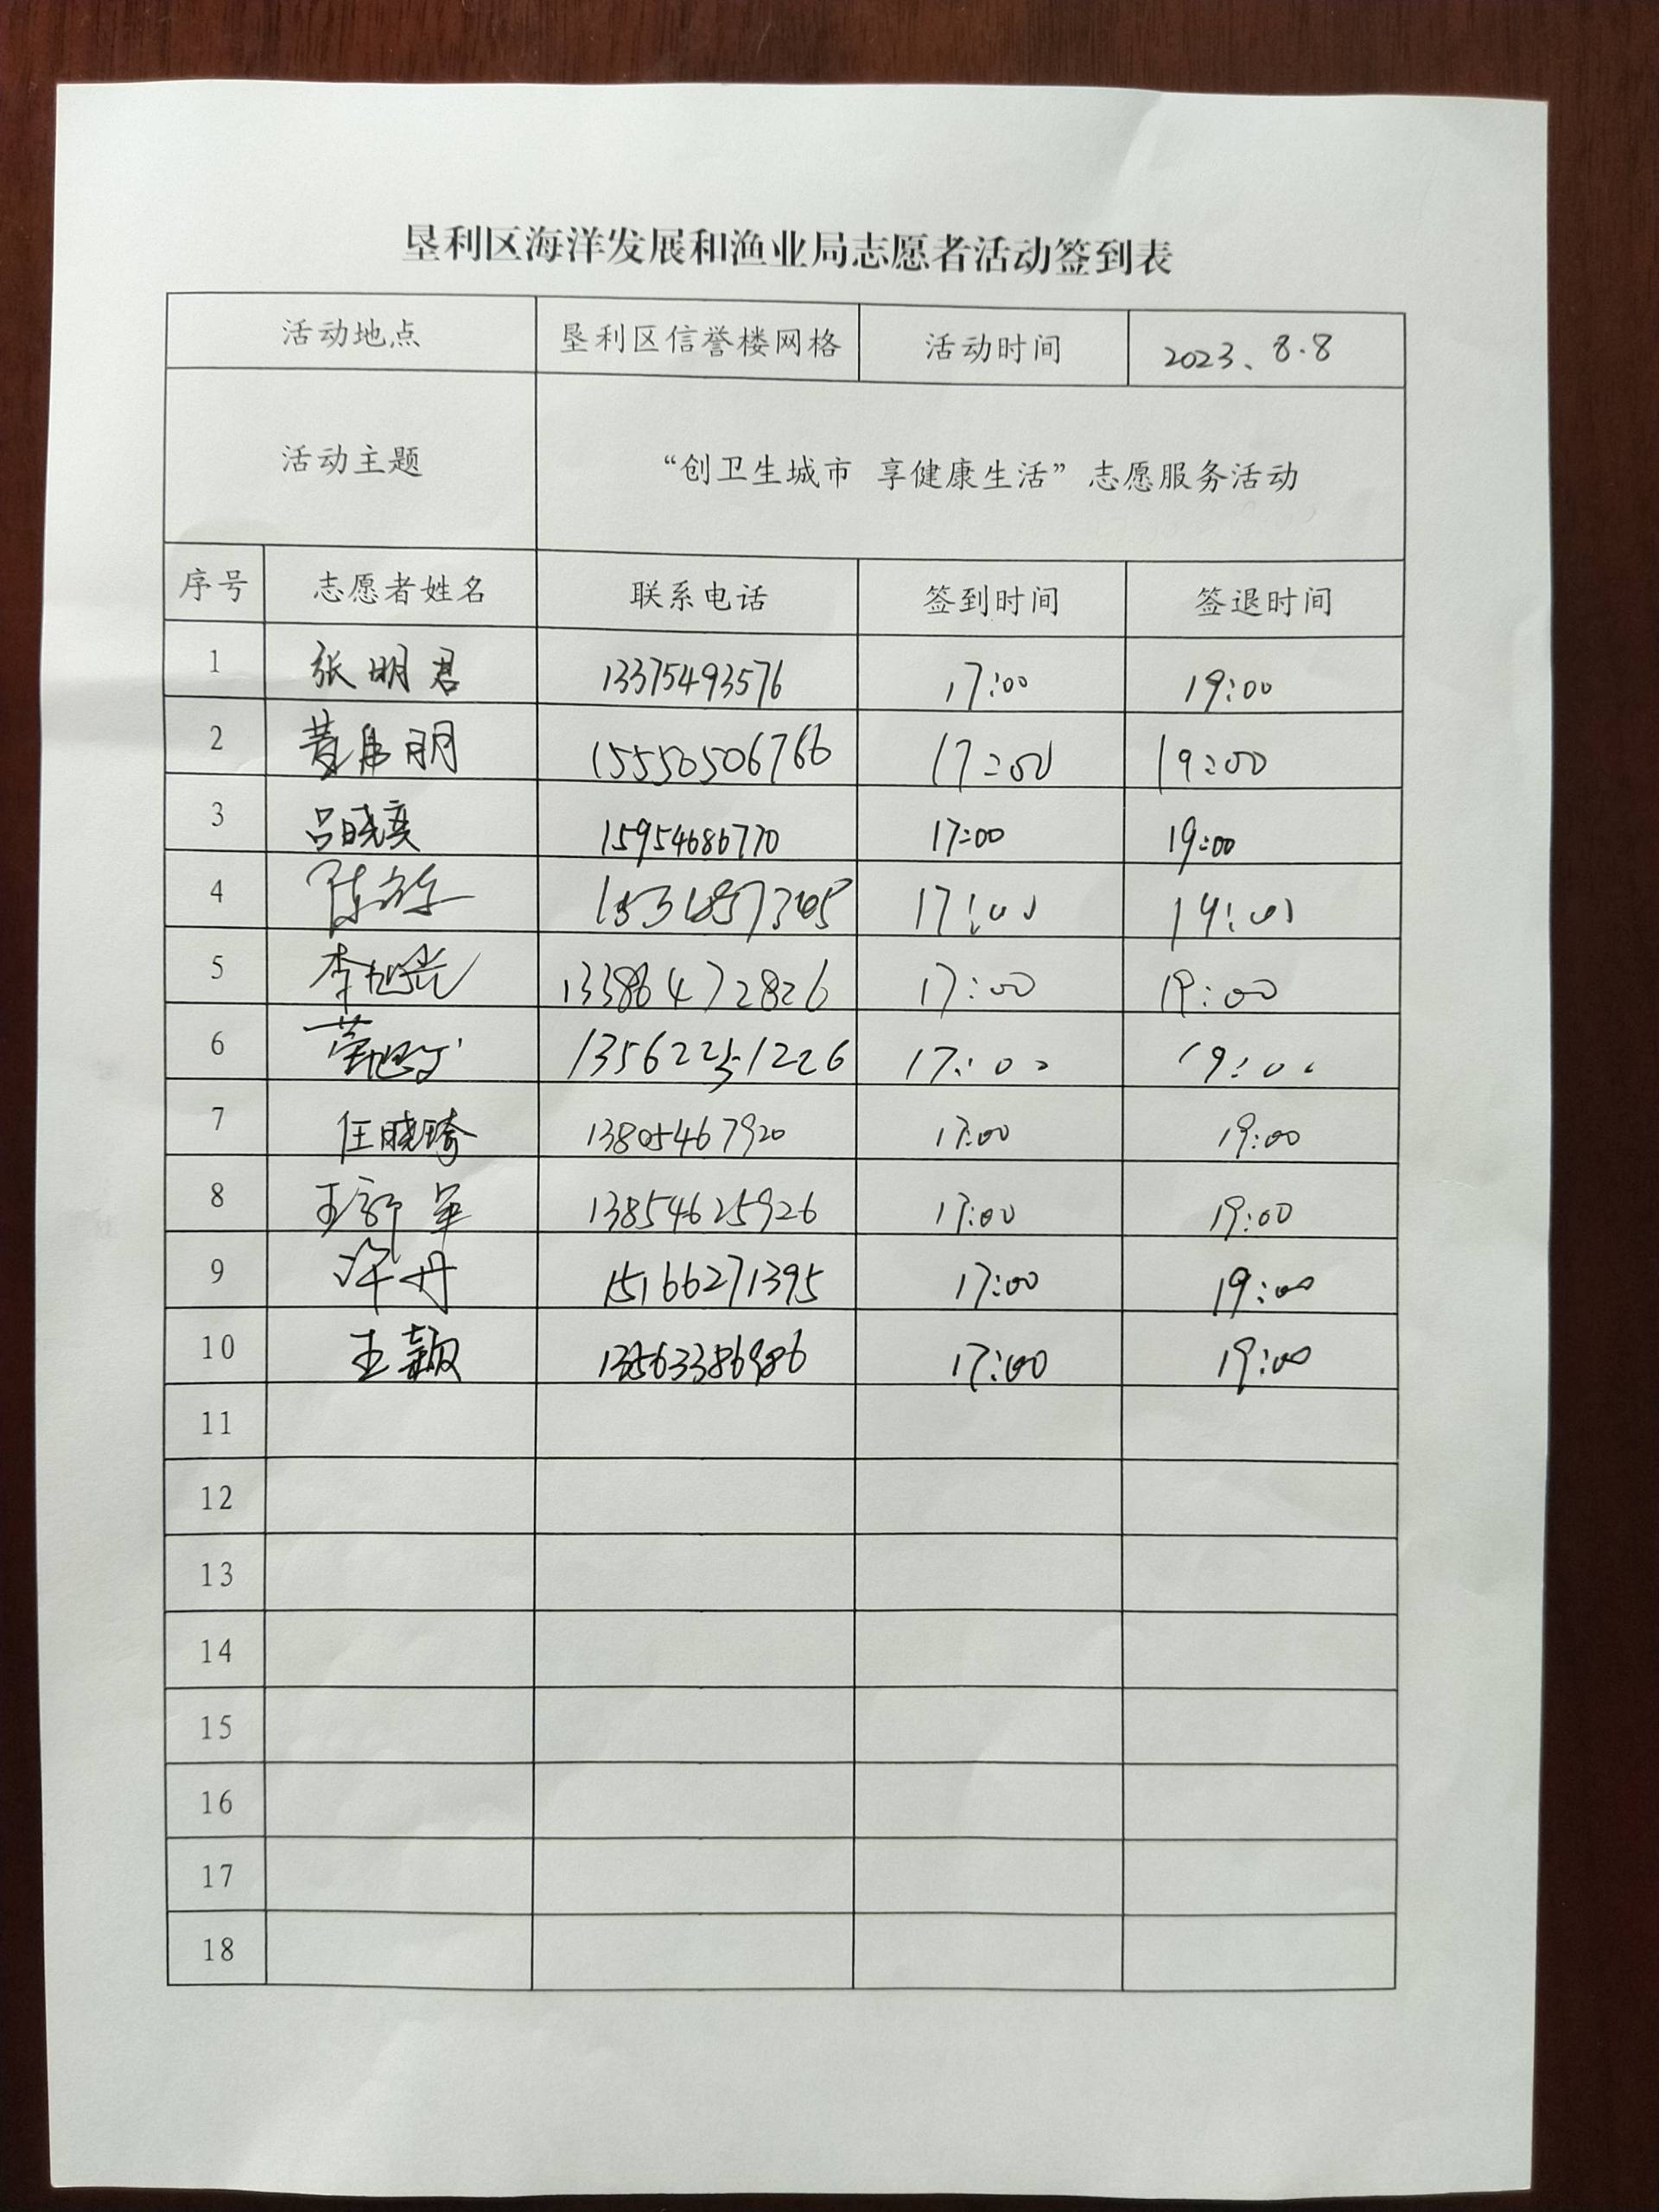 垦利区海洋发展和渔业局志愿者活动签到表
活动地点 垦利区信誉楼网格 活动时间 2023、8.8
活动主题 “创卫生城市 享健康生活”志愿服务活动
序号 志愿者姓名 联系电话 签到时间 签退时间
1 张明君 13375493576 17:00 19:00
2 15550506766 17:00 19:00
3 吕晓奕 15954686770 17:00 19:00
4 17:00 19:00
5 李旭光 13386472826 17:00 19:00
6 17:00 19:00
7 任晓琦 13805467920 17:00 19:00
8 13854625926 17:00 19:00
9 许丹 15166271395 17:00 19:00
10 王颖 13563386986 17:00 19:00
11
12
13
14
15
16
17
18